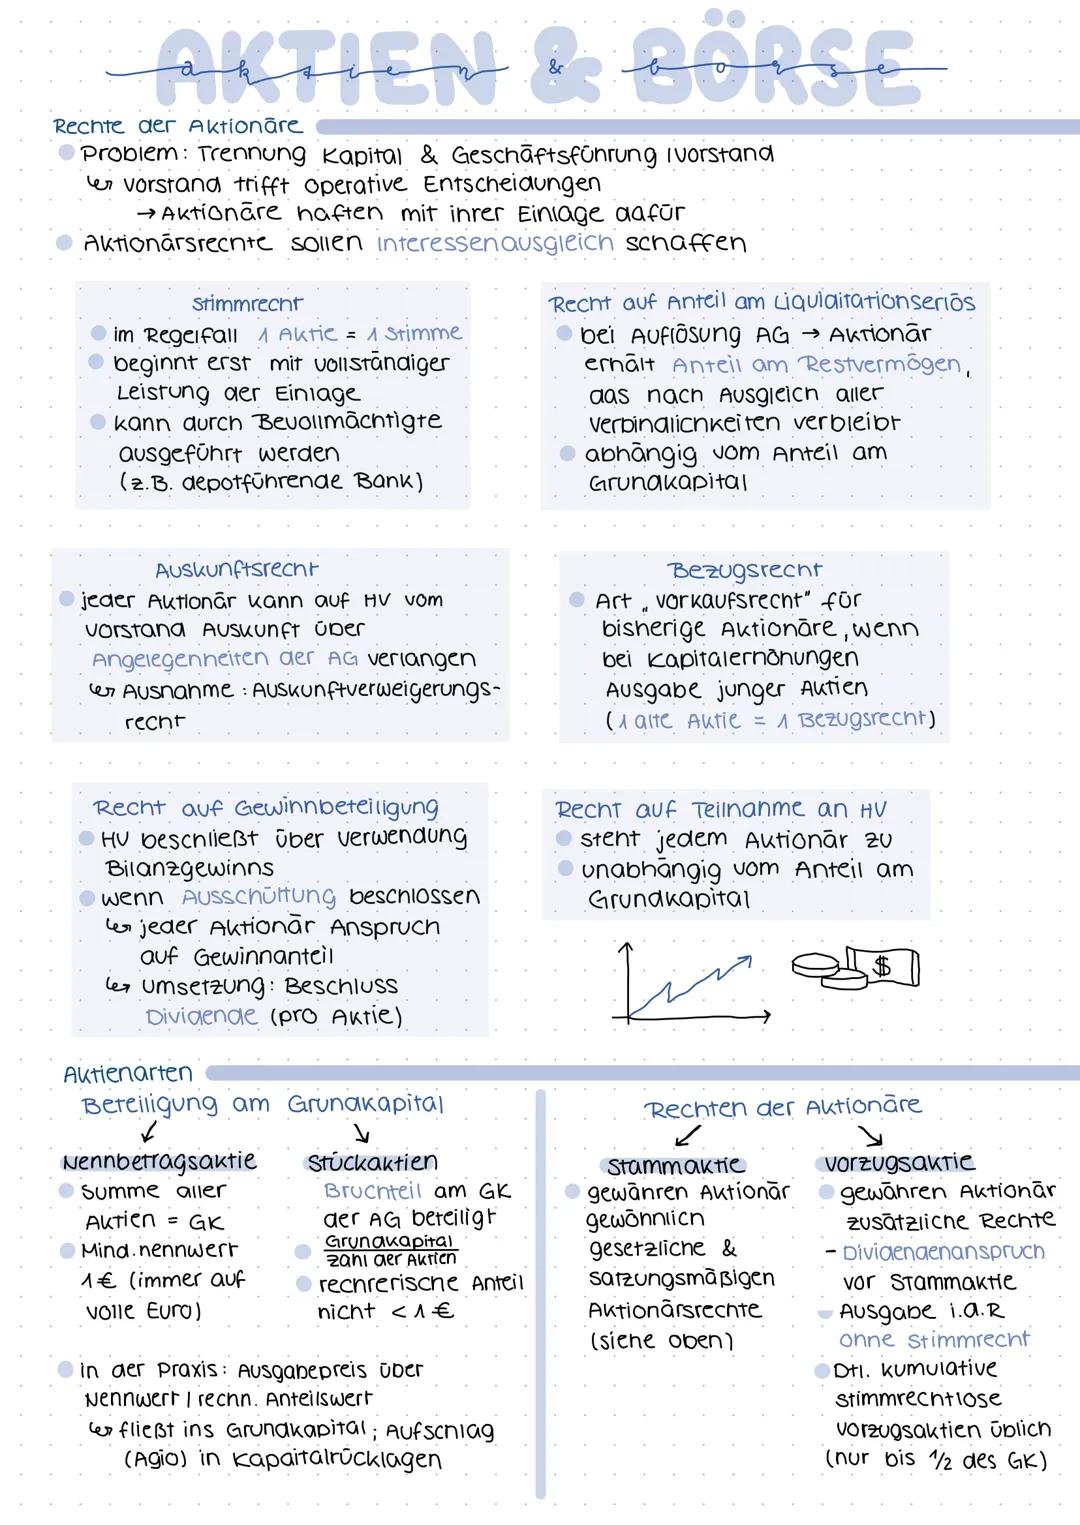 AKTIEN & BÖRSE
aktien & börse
Rechte der Aktionäre
Problem: Trennung Kapital & Geschäftsführung / Vorstand
↳ Vorstand trifft operative Entscheidungen
→ Aktionäre haften mit ihrer Einlage dafür
Aktionärsrechte sollen Interessenausgleich schaffen
Stimmrecht
im Regelfall 1 Aktie = 1 Stimme
beginnt erst mit vollständiger
Leistung der Einlage
kann durch Bevollmächtigte
ausgeführt werden
(z.B. depotführende Bank)
Recht auf Anteil am Liquiditationserlös
bei Auflösung AG → Aktionär
erhält Anteil am Restvermögen,
das nach Ausgleich aller
Verbindlichkeiten verbleibt
abhängig vom Anteil am
Grundkapital
Auskunftsrecht
jeder Aktionär kann auf HV vom
Vorstand Auskunft über
Angelegenheiten der AG verlangen
↳ Ausnahme: Auskunftverweigerungs-
recht
Bezugsrecht
Art „Vorkaufsrecht" für
bisherige Aktionäre, wenn
bei Kapitalerhöhungen
Ausgabe junger Aktien
(1 alte Aktie = 1 Bezugsrecht)
Recht auf Gewinnbeteiligung
HV beschließt über Verwendung
Bilanzgewinns
wenn Ausschüttung beschlossen
↳ jeder Aktionär Anspruch
auf Gewinnanteil
↳ Umsetzung: Beschluss
Dividende (pro Aktie)
Recht auf Teilnahme an HV
steht jedem Aktionär zu
unabhängig vom Anteil am
Grundkapital
$
Aktienarten
Beteiligung am Grundkapital
Nennbetragsaktie
Summe aller
Aktien = GK
Mind. nennwert
1€ (immer auf
volle Euro)
Stückaktien
Bruchteil am GK
der AG beteiligt
Grundkapital
Zahl der Aktien
rechrerische Anteil
nicht < 1 €
in der Praxis: Ausgabepreis über
Nennwert / rechn. Anteilswert
↳ fließt ins Grundkapital; Aufschlag
(Agio) in Kapaitalrücklagen
Rechten der Aktionäre
Stammaktie
gewähren Aktionär
gewöhnlich
gesetzliche &
satzungsmäßigen
Aktionärsrechte
(siehe oben)
Vorzugsaktie
gewähren Aktionär
zusätzliche Rechte
- Dividendenanspruch
vor Stammaktie
Ausgabe i.d.R
ohne Stimmrecht
Dtl. kumulative
stimmrechtlose
Vorzugsaktien üblich
(nur bis 1/2 des GK)